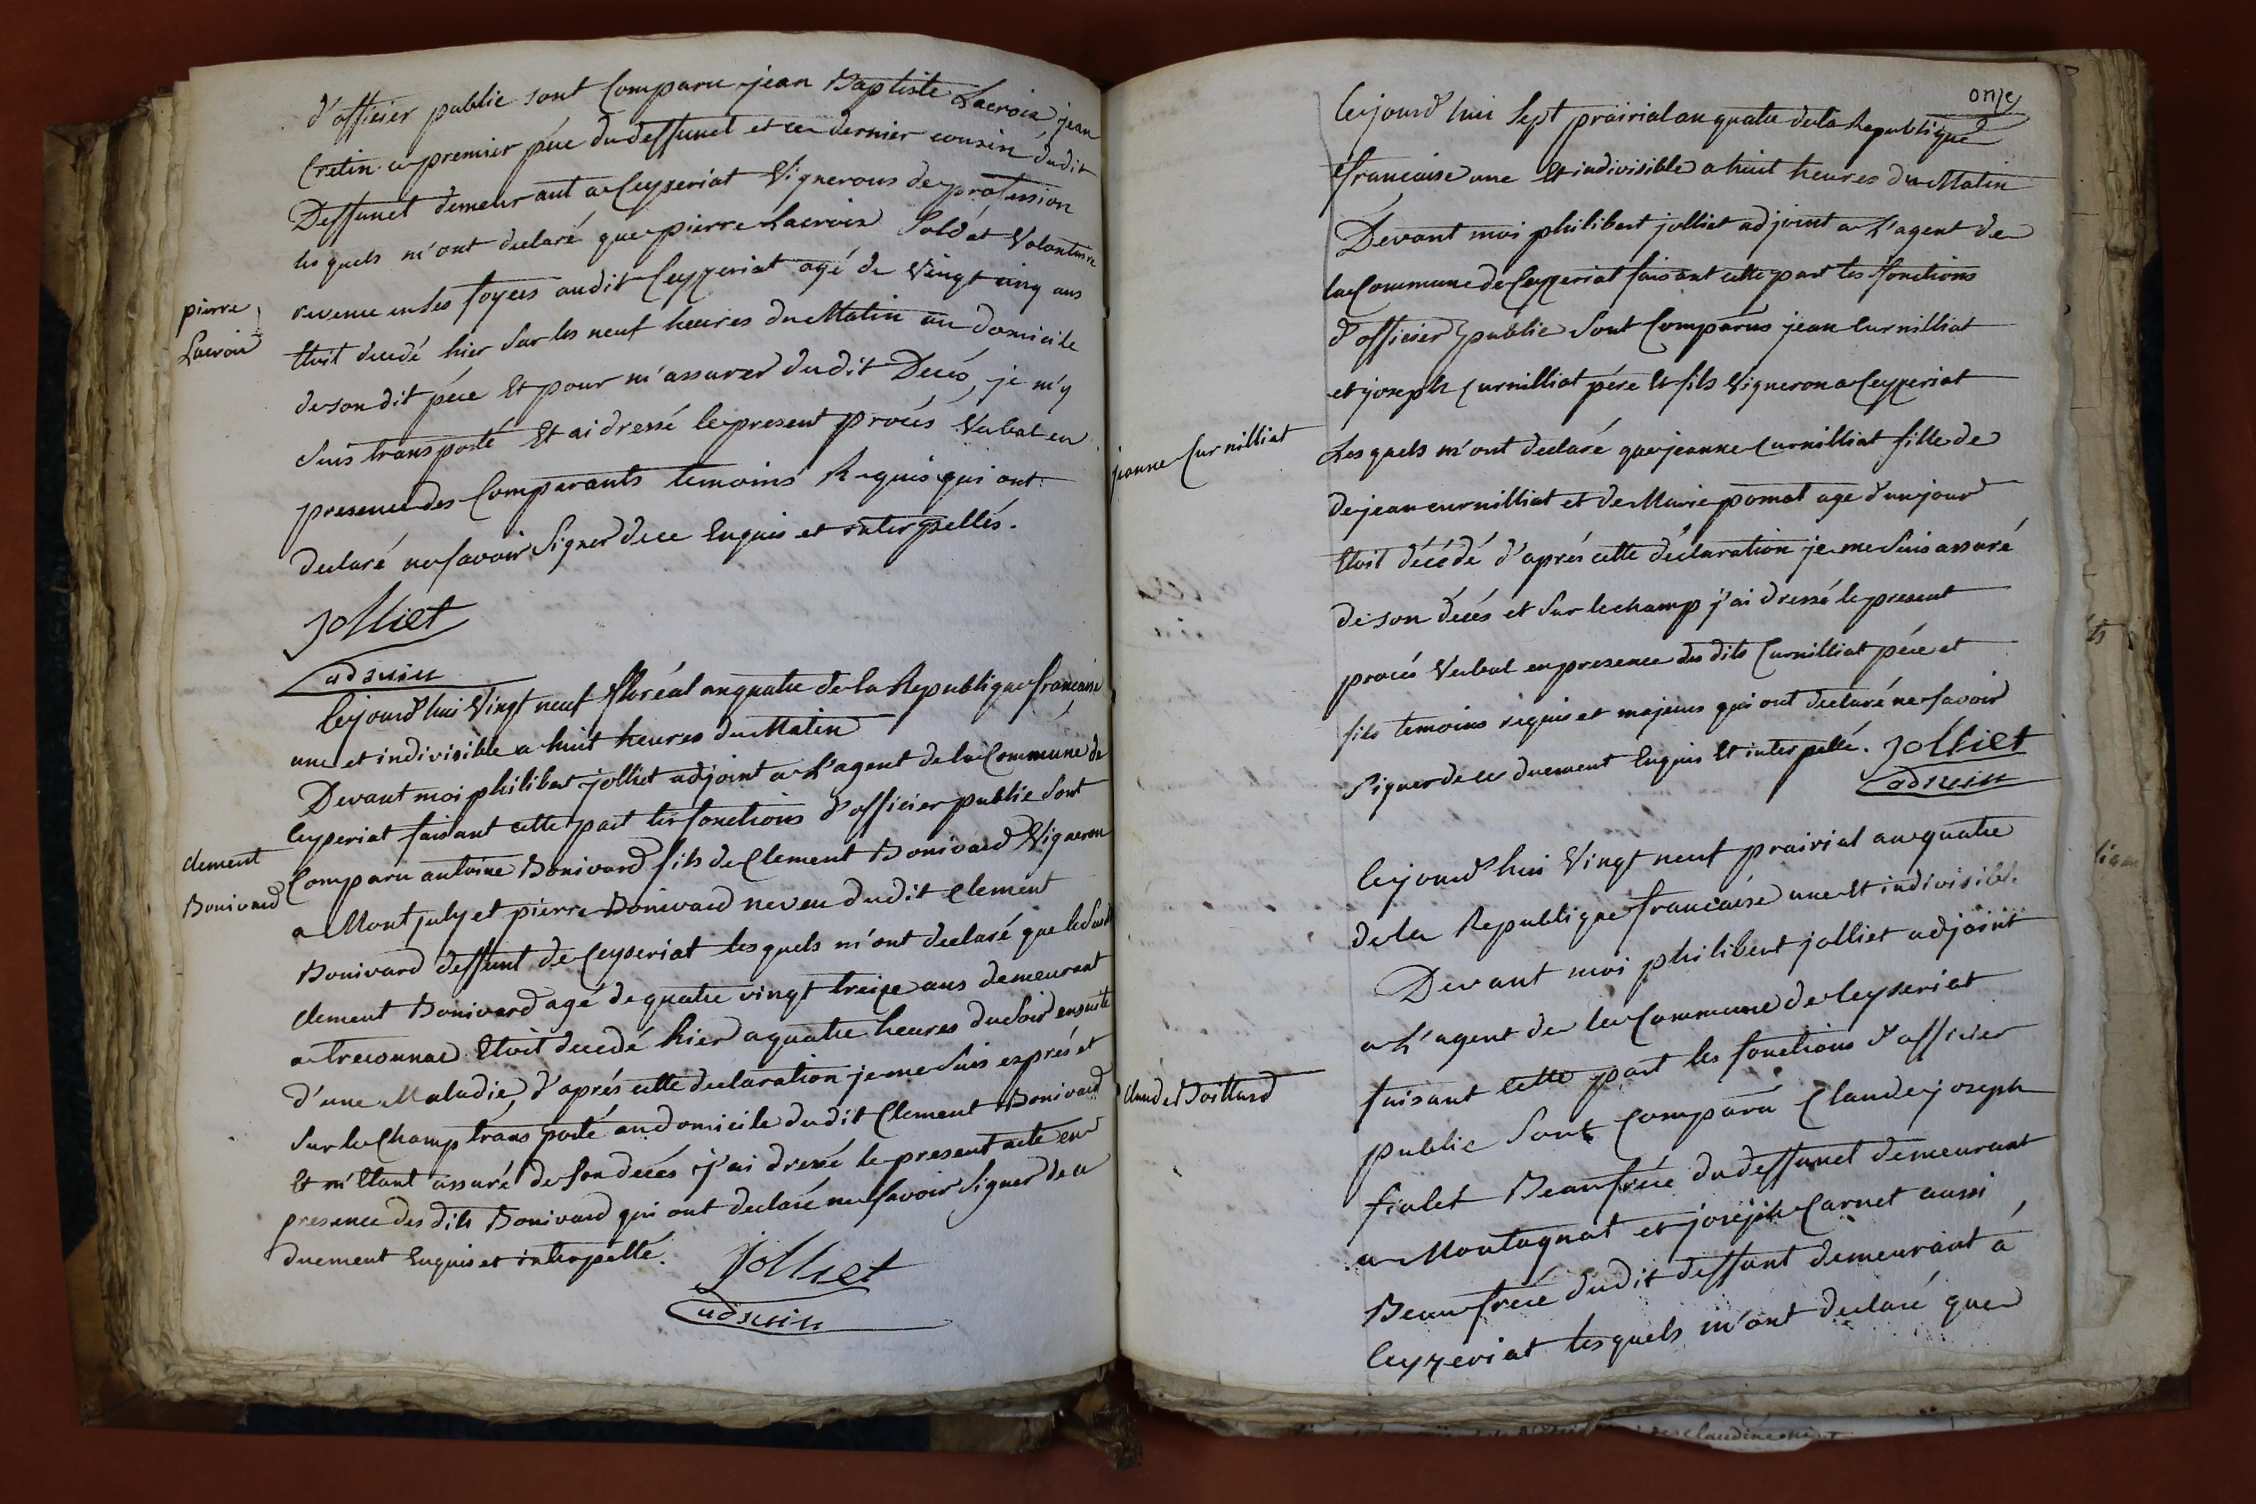 d'officier public sont Comparu jean Baptiste Lacroix jean
Cretin. le premier pére du deffunct et ce dernier cousin dudit
Deffunct demeurant a Ceyzeriat Vignerons de profession
les quels m'ont declaré que pierre Lacroix Soldat Volontaire
revenu en ses foyers audit Ceyzeriat agé de Vingt cinq ans
pierre
Lacroix
Etoit decedé hier sur les neuf heures du Matin au domicile
de son dit pére Et pour m'assurer dudit Decés, je m'y
suis transporté Et ai dressé le present procés Verbal en
presence des Comparants temoins Requis qui ont
declaré ne savoir Signer de ce Enquis et interpellés.
jolliet
adjoint
Cejourd'hui Vingt neuf floréal an quatre de la Republique francaise
une et indivisible a huit heures du Matin
Devant moi philibert jolliet adjoint a L'agent de la Commune de
Ceyzeriat faisant cette part les fonctions d'officier public Sont
clement
Bonivard
Comparu antoine Bonivard fils de Clement Bonivard Vigneron
a Montjuly et pierre Bonivard neveu dudit Clement
Bonivard deffunt de Ceyzeriat les quels m'ont declaré que ledit
clement Bonivard agé de quatre vingt treize ans demeurant
a treconnac Etoit decedé hier a quatre heures du Soir ensuite
d'une Maladie, d'aprés cette declaration je me suis exprés et
sur le Champ transporté au domicile dudit Clement Bonivard
Et m'Etant assuré de son decés j'ai dressé le present acte en
presence des dits Bonivard qui ont declaré ne savoir Signer de ce
duement Enquis et interpellé.
jolliet
adjoint
onze
Cejourd'hui Sept prairial an quatre de la Republique
francaise une Et indivisible a huit heures du Matin
Devant moi philibert jolliet adjoint a L'agent de
la Commune de Ceyzeriat faisant cette part les fonctions
d'officier public Sont Comparus jean Curnilliat
et joseph Curnilliat pére Et fils Vigneron a Ceyzeriat
jeanne Curnilliat
Les quels m'ont declaré que jeanne Curnilliat fille de
de jean curnilliat et de Marie pomat age d'un jour
Etoit décédé d'aprés cette déclaration je me suis assuré
de son decés et sur le champ j'ai dressé le present
procés Verbal en presence des dits Curnilliat pére et
fils temoins requis et majeurs qui ont declaré ne savoir
signer de ce duement Enquis Et interpellé.
jolliet
adjoint
Cejourd'hui Vingt neuf prairial an quatre
de la Republique francaise une Et indivisible
Devant moi philibert jolliet adjoint
a L'agent de la Commune de Ceyseriat
faisant cette part les fonctions d'officier
Claude Boillard
public Sont Comparu Claude joseph
fialet Beaufrére du deffunct demeurant
a Montagnat et joseph Carnet aussi
Beaufrére dudit deffunt demeurant á
Ceyzeriat les quels m'ont declaré que